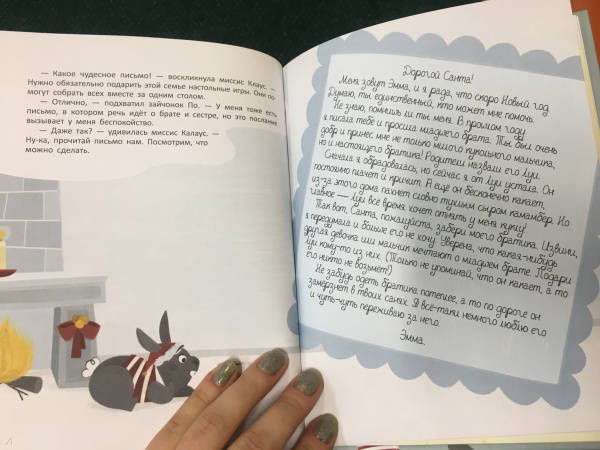 — Какое чудесное письмо! — воскликнула миссис Клаус. —
Нужно обязательно подарить этой семье настольные игры. Они по-
могут собрать всех вместе за одним столом.
— Отлично, — подхватил зайчонок По. — У меня тоже есть
письмо, в котором речь идёт о брате и сестре, но это послание
вызывает у меня беспокойство.
— Даже так? — удивилась миссис Калаус. —
Ну-ка, прочитай письмо нам. Посмотрим, что
можно сделать.
Дорогой Санта!
Меня зовут Эмма, и я рада, что скоро Новый год.
Думаю, ты единственный, кто может мне помочь.
Не знаю, помнишь ли ты меня. В прошлом году
я писала тебе и просила младшего брата. Ты был очень
добр и принёс мне не только милого кукольного мальчика,
но и настоящего братика! Родители назвали его Луи.
Сначала я обрадовалась, но сейчас я от Луи устала. Он
постоянно плачет и кричит. А ещё он бесконечно какает,
из-за этого дома пахнет словно тухлым сыром камамбер. Но
главное — Луи всё время хочет отнять у меня куклу!
Так вот, Санта, пожалуйста, забери моего братика. Извини,
я передумала и больше его не хочу. Уверена, что какая-нибудь
другая девочка или мальчик мечтают о младшем брате. Подари
Луи кому-то из них. (Только не упоминай, что он какает, а то
его никто не возьмёт!)
Не забудь одеть братика потеплее, а то по дороге он
замёрзнет в твоих санях. Я всё-таки немного люблю его
и чуть-чуть переживаю за него.
Эмма